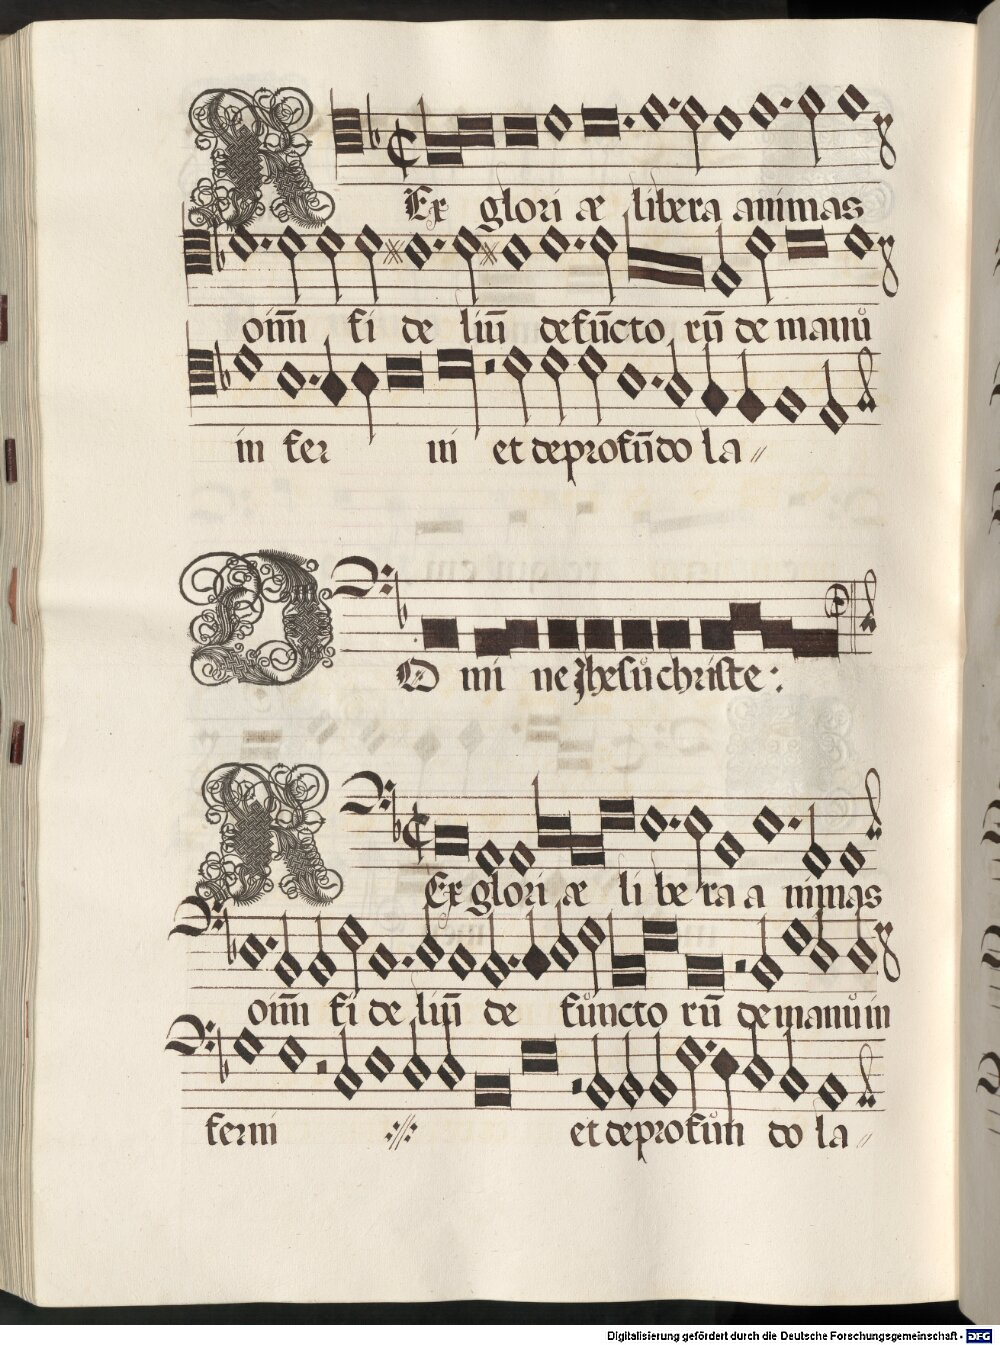 REx gloriæ libera animas
om̄ fi de liū defūcto rū de manů
in fer ni et deprofūdo la
DOmi ne Jhesůchriste:
REx gloriæ libera animas
om̄ fi de liū de fůncto rū de manůin
ferni et deprofůn do la
Digitalisierung gefördert durch die Deutsche Forschungsgemeinschaft - DFG